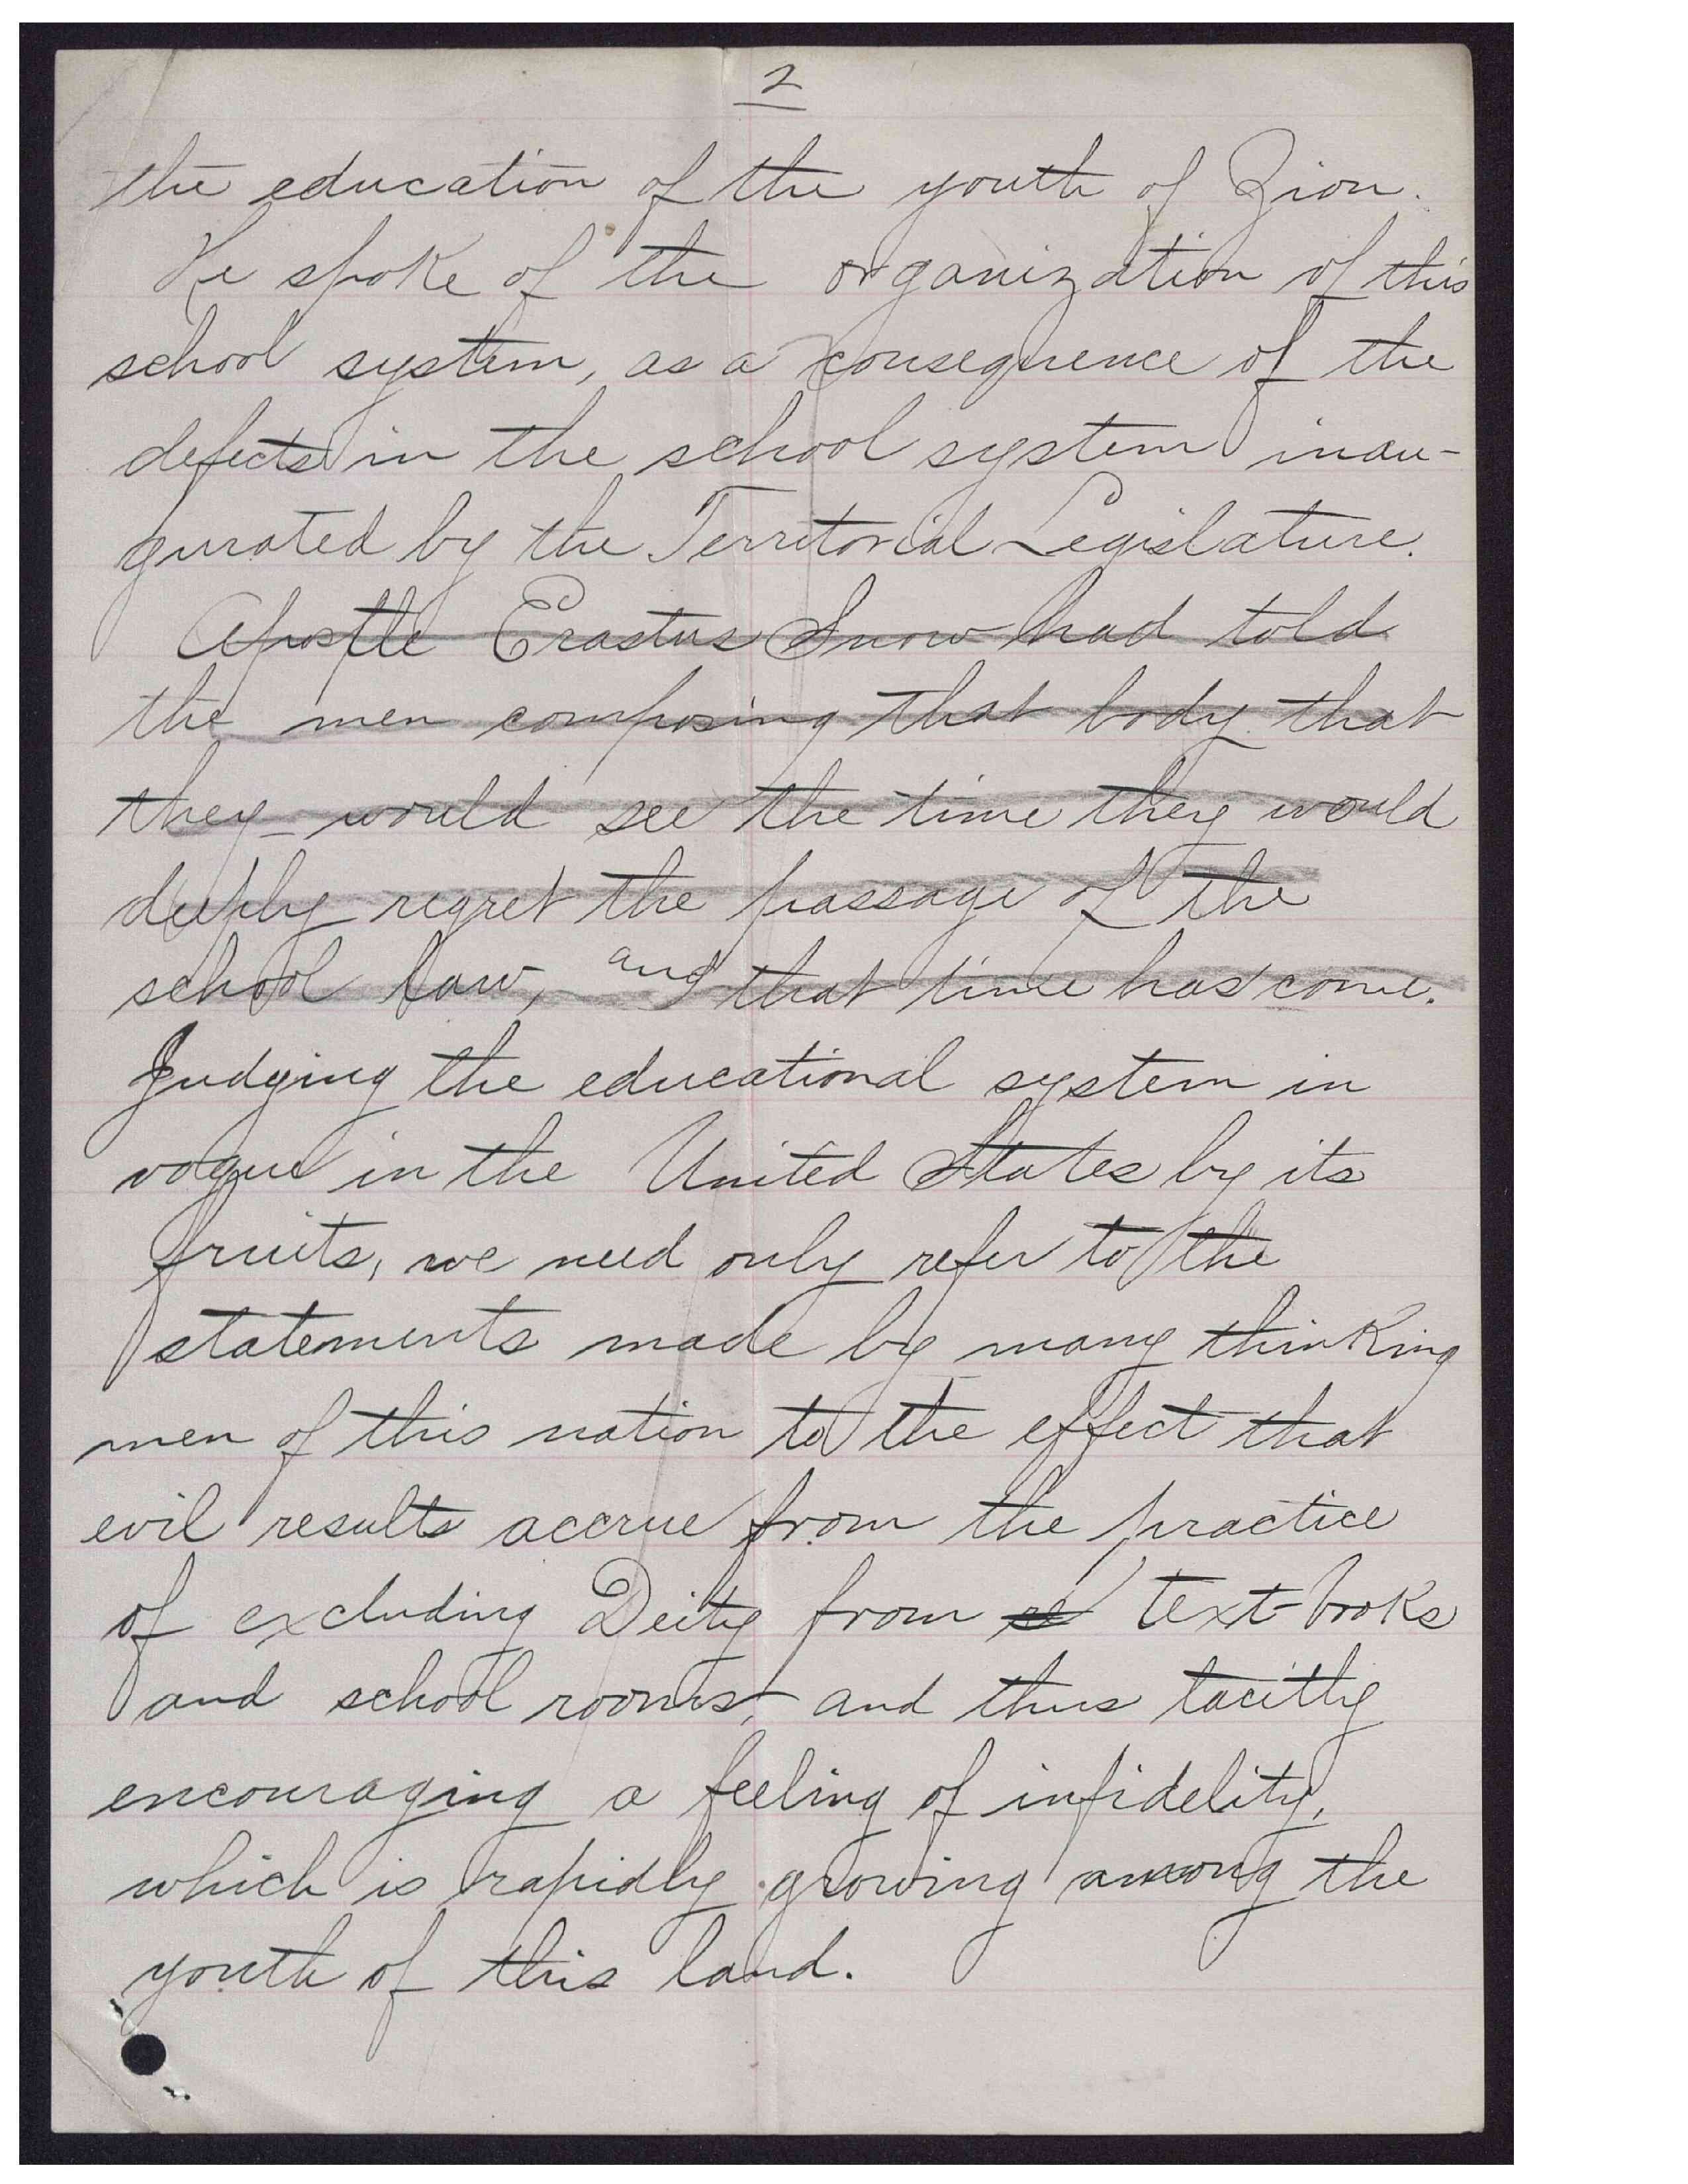 2
the education of the youth of Zion.
He spoke of the organization of this
school system, as a consequence of the
defects in the school system inau-
gurated by the Territorial Legislature.
Apostle Erastus Snow had told
the men composing that body that
they would see the time they would
deeply regret the passage of the
school law, and that time has come.
Judging the educational system in
vogue in the United States by its
fruits, we need only refer to the
statements made by many thinking
men of this nation to the effect that
evil results accrue from the practice
of excluding Deity from re text-books
and school rooms, and thus tacitly
encouraging a feeling of infidelity,
which is rapidly growing among the
youth of this land.